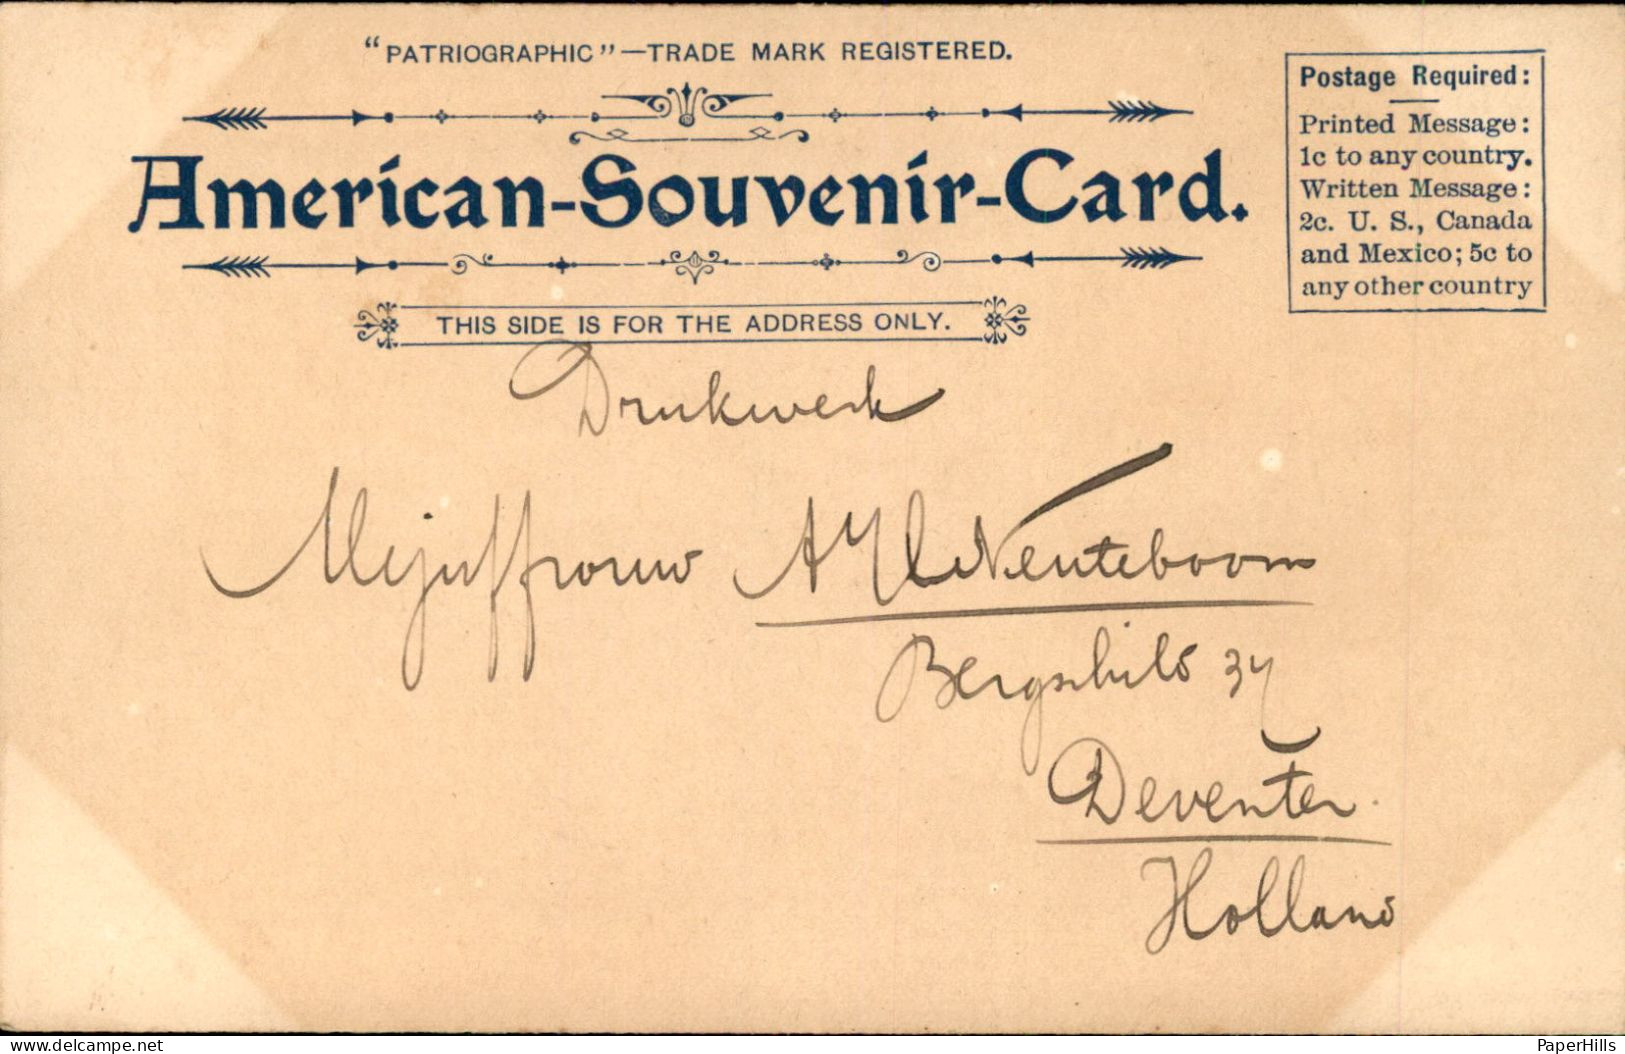 “PATRIOGRAPHIC”—TRADE MARK REGISTERED.
American-Souvenir-Card.
THIS SIDE IS FOR THE ADDRESS ONLY.
Postage Required:
Printed Message:
1c to any country.
Written Message:
2c. U. S., Canada
and Mexico; 5c to
any other country
Drukwerk
Mejuffrouw A Neuteboom
Bergschild
Deventer.
Holland
delcampe.net
PaperHills